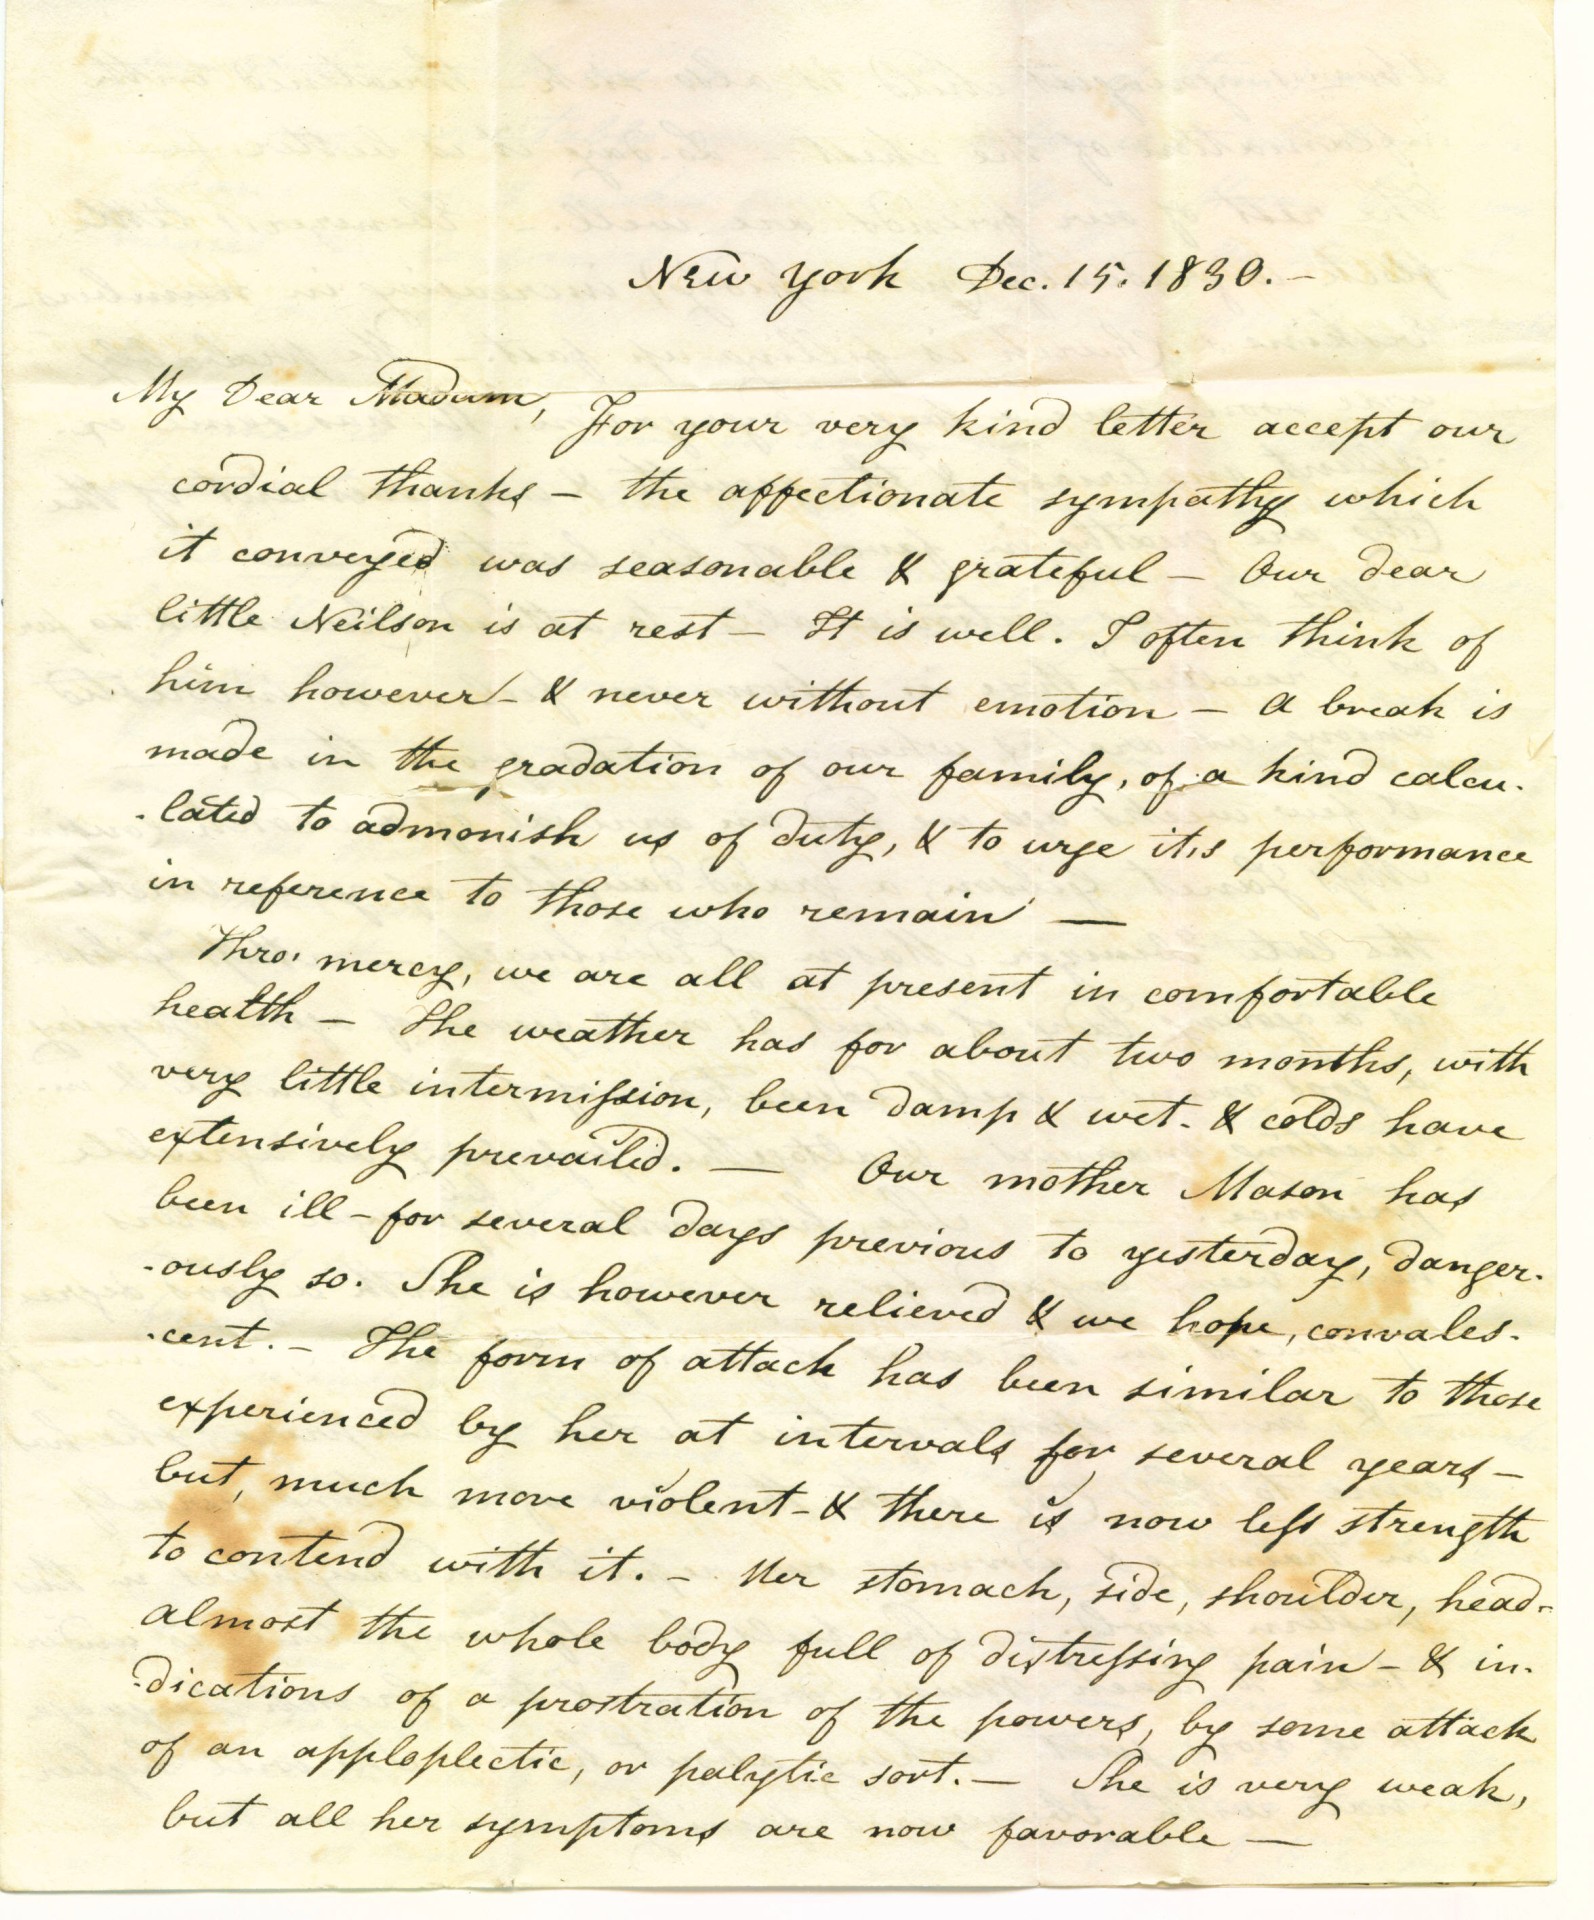 New York Dec. 15. 1830. —
My Dear Madam, For your very kind letter accept our
cordial thanks — the affectionate sympathy which
it conveyed was seasonable & grateful — Our dear
little Neilson is at rest — It is well. I often think of
him however — & never without emotion — A break is
made in the gradation of our family, of a kind calcu-
-lated to admonish us of duty, & to urge its performance
in reference to those who remain —
Thro' mercy, we are all at present in comfortable
health — The weather has for about two months, with
very little intermission, been damp & wet - & colds have
extensively prevailed. — Our mother Mason has
been ill - for several days previous to yesterday, danger-
-ously so. She is however relieved & we hope, convales-
-cent. — The form of attack has been similar to those
experienced by her at intervals for several years —
but, much more violent - & there is now less strength
to contend with it. — Her stomach, side, shoulder, head -
almost the whole body full of distressing pain - & in-
-dications of a prostration of the powers, by some attack
of an apploplectic, or palytic sort. — She is very weak,
but all her symptoms are now favorable —